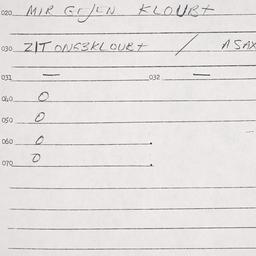 020 MIR GEJEN KLOUB+
030 ZITONG3KLOUB+ / ASAX
031 — 032 —
040 0
050 0
060 0
070 0